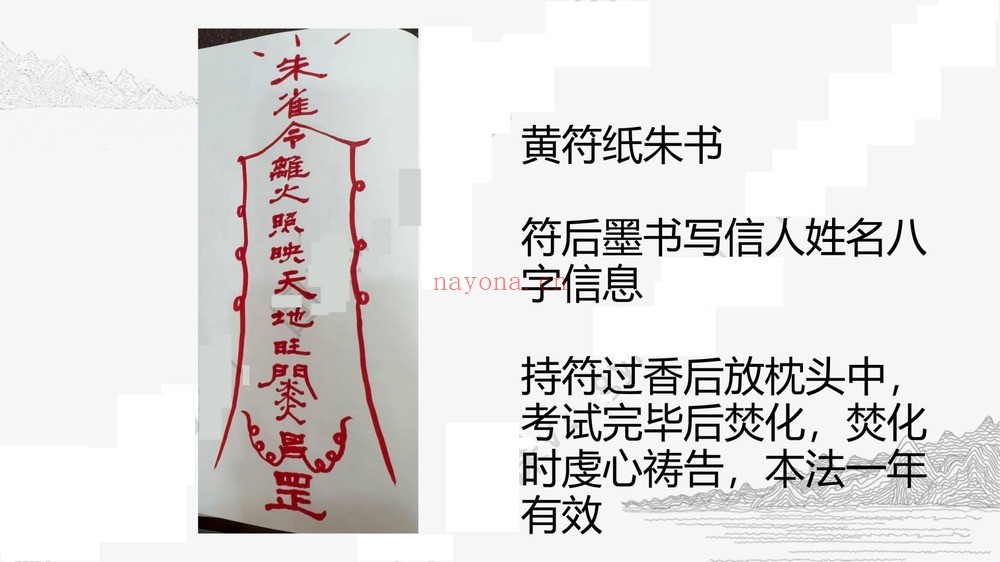 朱雀令離火照映天地旺
昌罡
黄符纸朱书
符后墨书写信人姓名八
字信息
持符过香后放枕头中，
考试完毕后焚化，焚化
时虔心祷告，本法一年
有效
nayona.cn